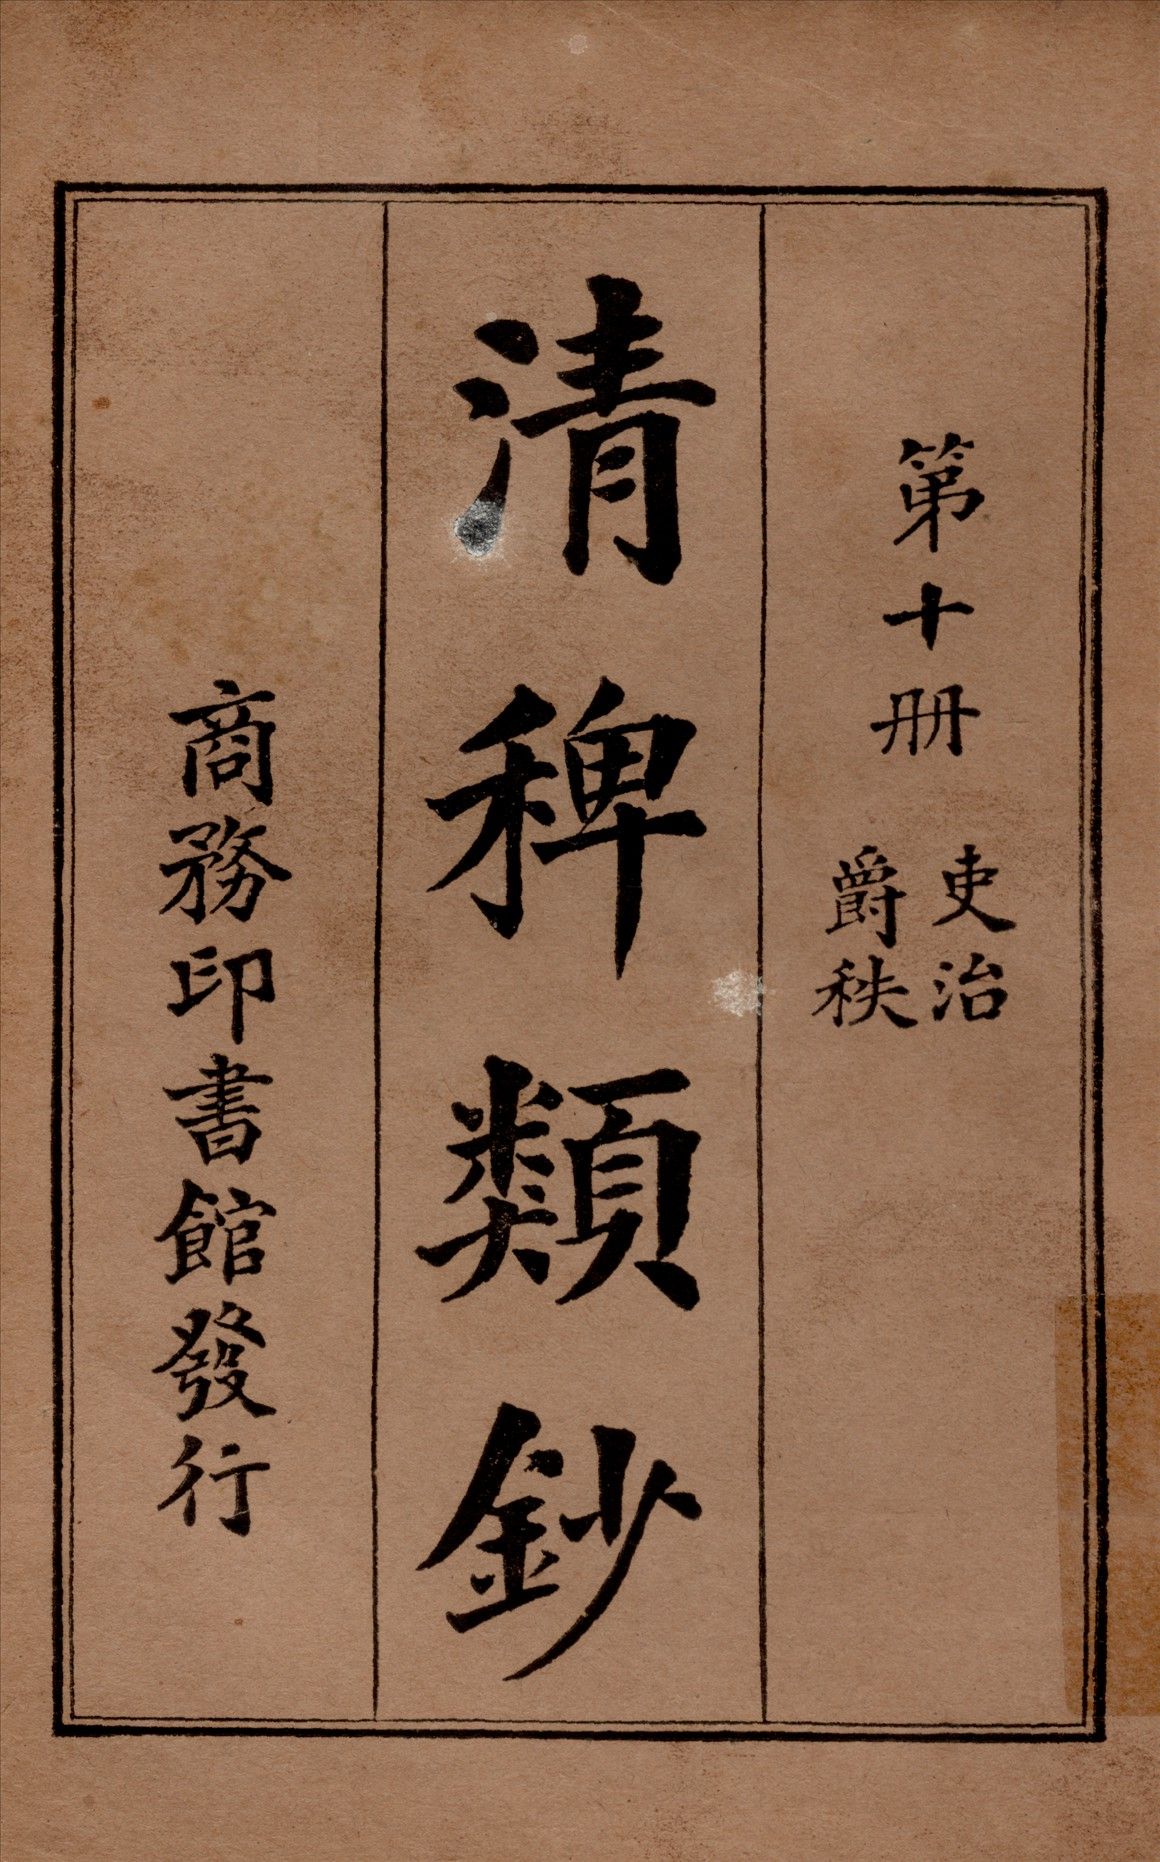 第十册
吏治
爵秩
清稗類鈔
商務印書館發行